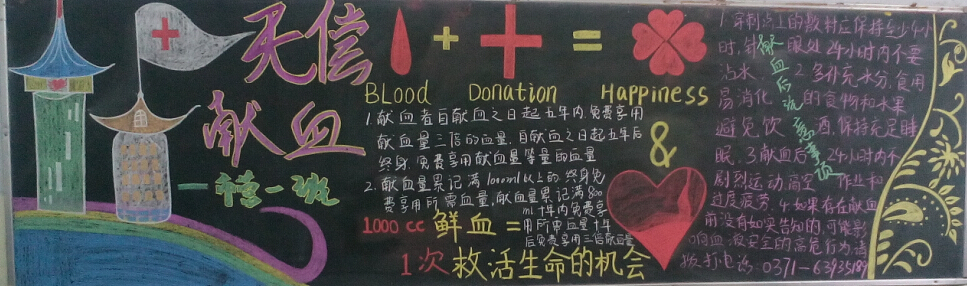 无偿
献血
一禧一班
+ + =
Blood Donation Happiness
1.献血者自献血之日起五年内,免费享用
献血量三倍的血量,自献血之日起五年后
终身,免费享用献血量等量的血量
2.献血量累记满1000ml以上的终身免
费享用所需血量,献血量累记满800
ml十年内免费享
用所需血量十年
后免费享用三倍献血量
&
1000cc鲜血=
1次救活生命的机会
献血后注意事项
1.穿刺点上的敷料应保持至少4小
时,针眼处24小时内不要
沾水、2.多补充水分,食用
易消化的食物和水果
避免饮酒,保持充足睡
眠、3.献血后24小时内不
剧烈运动、高空作业和
过度疲劳.4.如果存在献血
前没有如实告知的,可能影
响血液安全的高危行为,请
拨打电话0371-63935189